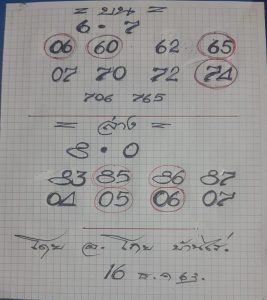 = บน =
6 · 7
06 60 62 65
07 70 72 74
706 765
= ล่าง =
8 · 0
83 85 86 87
04 05 06 07
โดย อ. โกย บ้านไร่.
16 ธ.ค 63.